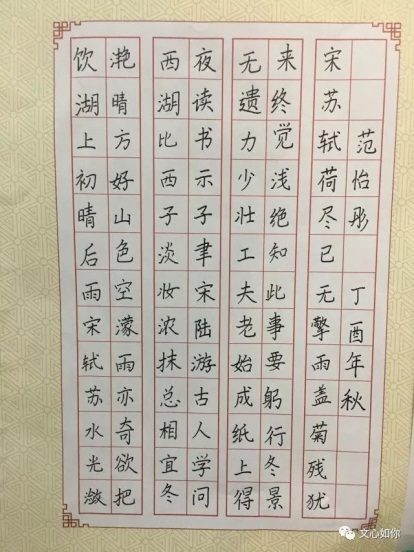 饮湖上初晴后雨宋轼苏水光潋
滟晴方好山色空濛雨亦奇欲把
西湖比西子淡妆浓抹总相宜冬
夜读书示子聿宋陆游古人学问
无遗力少壮工夫老始成纸上得
来终觉浅绝知此事要躬行冬景
宋苏轼荷尽已无擎雨盖菊残犹
范怡彤 丁酉年秋
文心如你